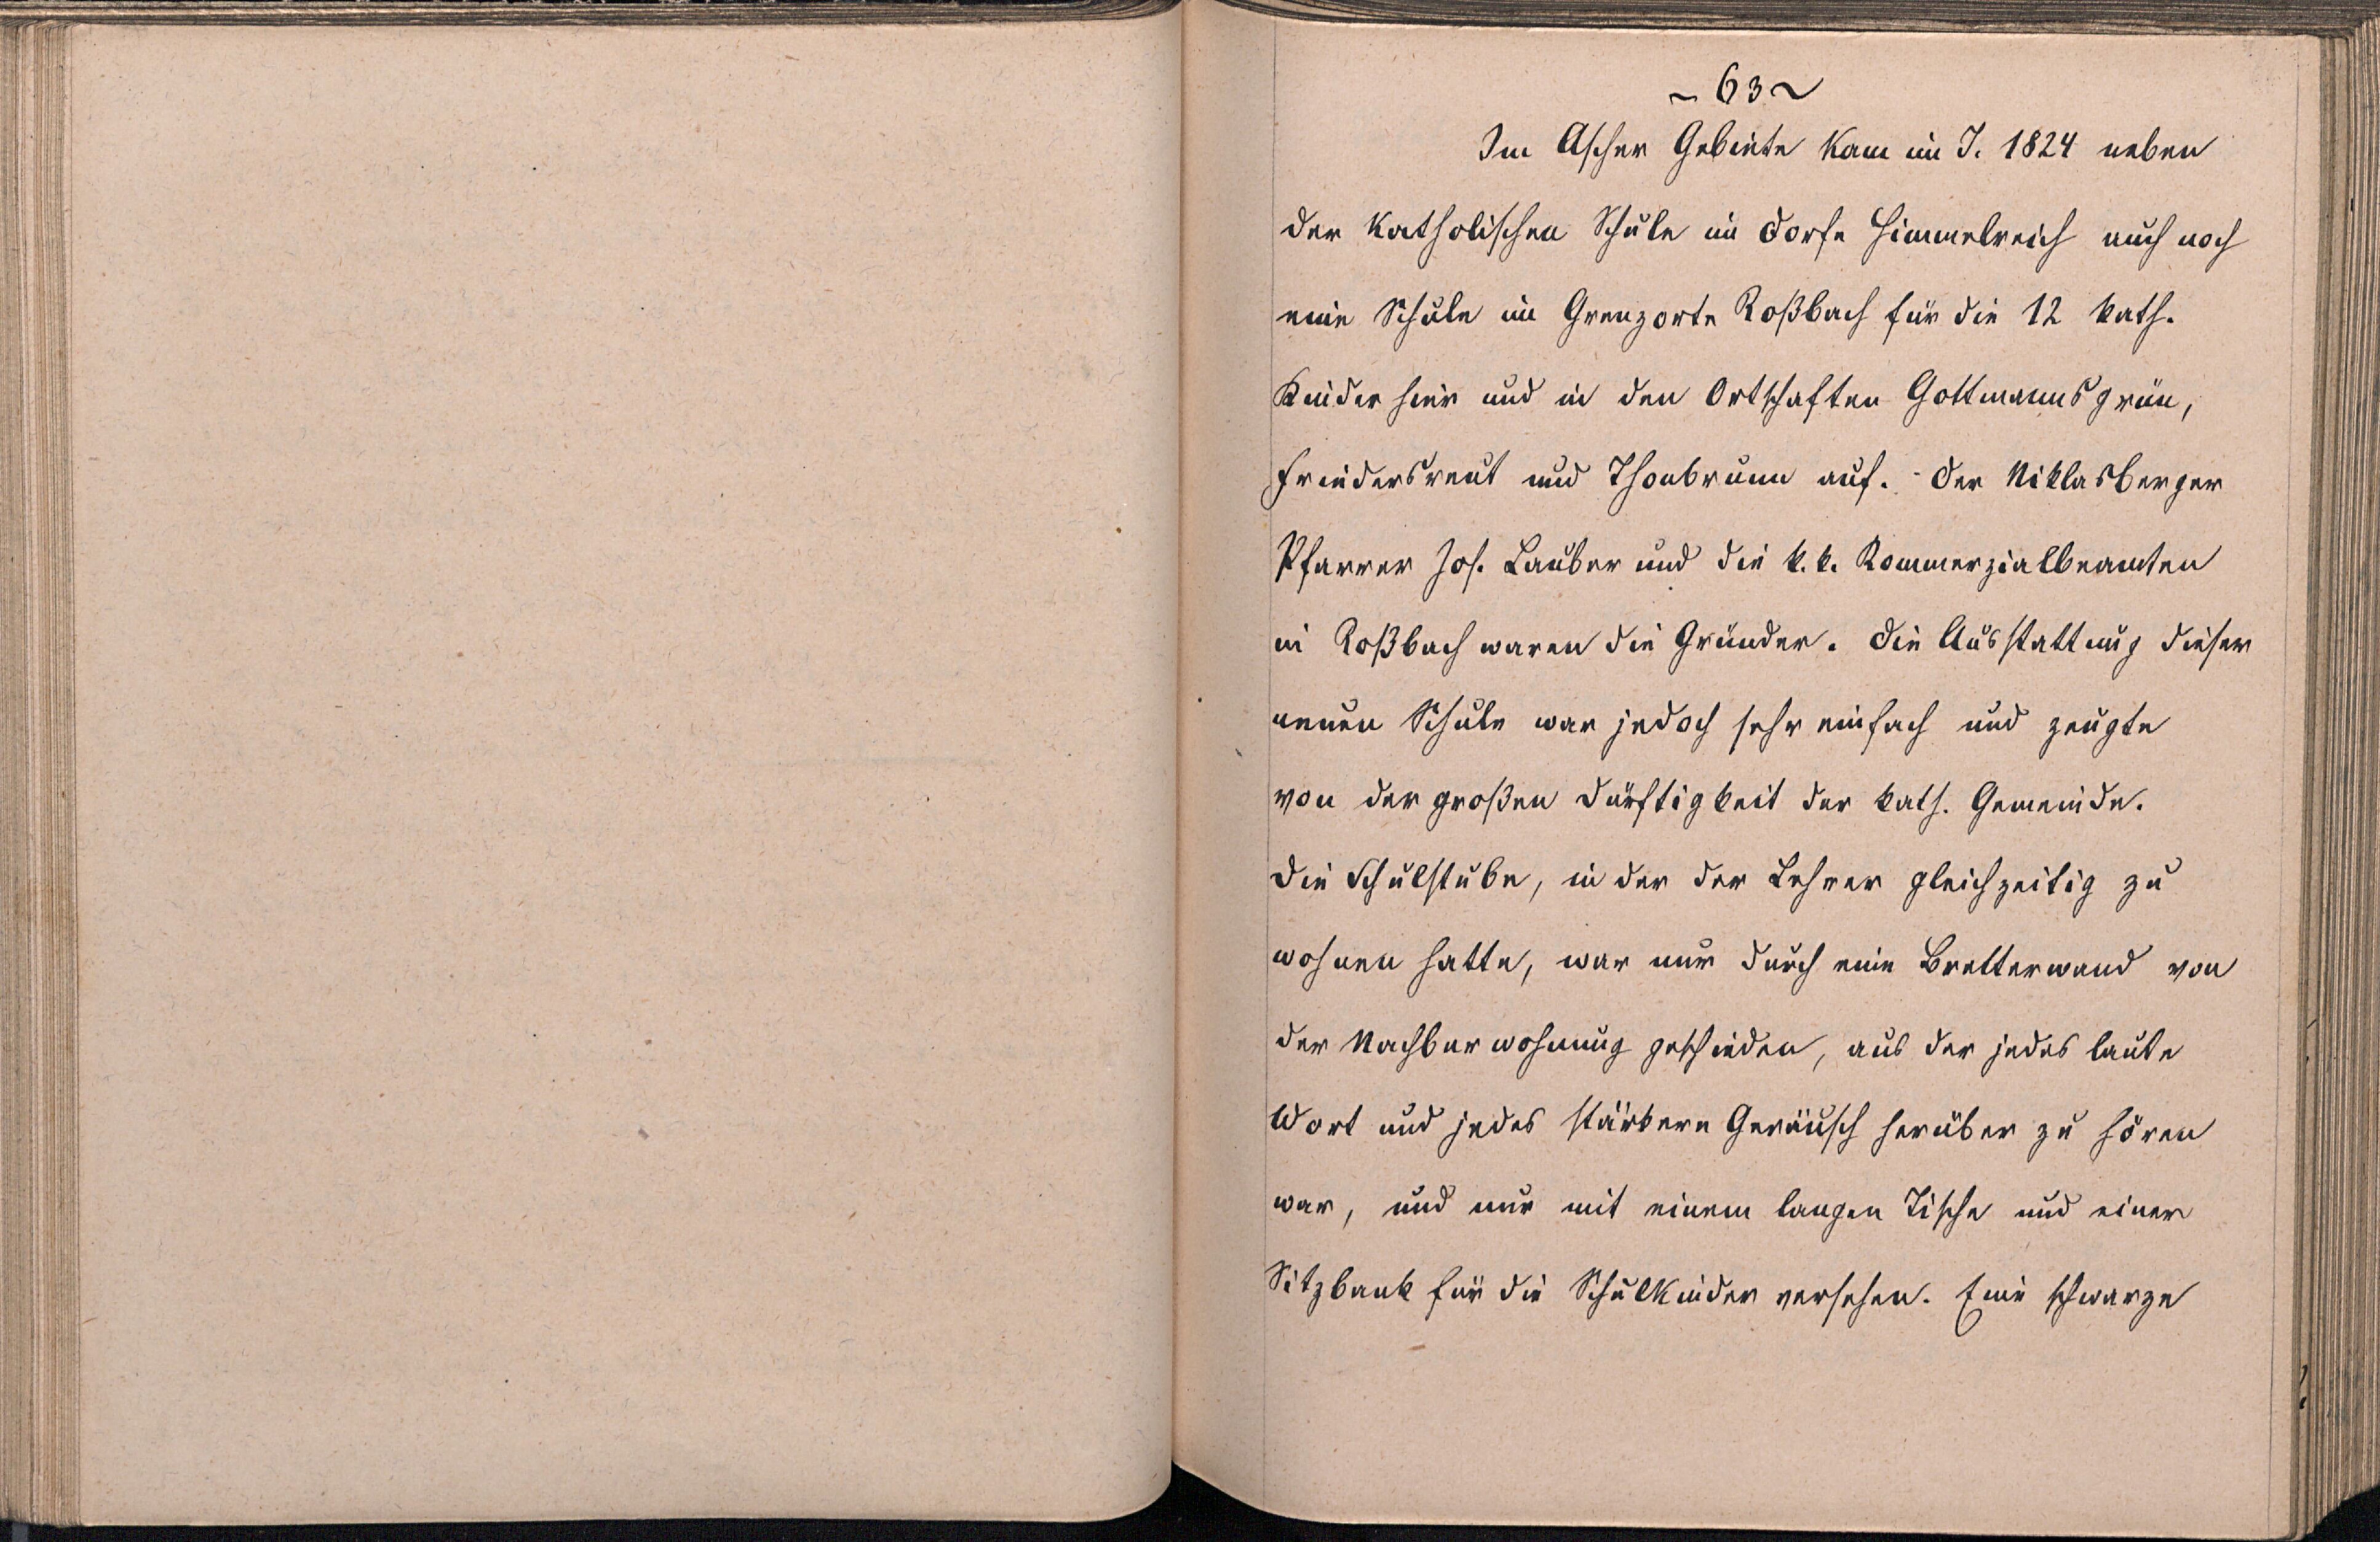 ~ 63 ~
Im Ascher Gebiete kam im J. 1824 neben
der katholischen Schule im Dorfe Himmelreich auch noch
eine Schule im Grenzorte Roßbach für die 12 kath.
Kinder hier und in den Ortschaften Gottmannsgrün,
Friedersreut und Thonbrunn auf. - Der Niklasberger
Pfarrer Jos. Lauber und die k. k. Kommerzialbeamten
in Roßbach waren die Gründer. Die Ausstattung dieser
neuen Schule war jedoch sehr einfach und zeugte
von der großen Dürftigkeit der kath. Gemeinde.
Die Schulstube, in der der Lehrer gleichzeitig zu
wohnen hatte, war nur durch eine Bretterwand von
der Nachbarwohnung geschieden, aus der jedes laute
Wort und jedes stärkere Geräusch herüber zu hören
war, und nur mit einem langen Tische und einer
Sitzbank für die Schulkinder versehen. Eine schwarze